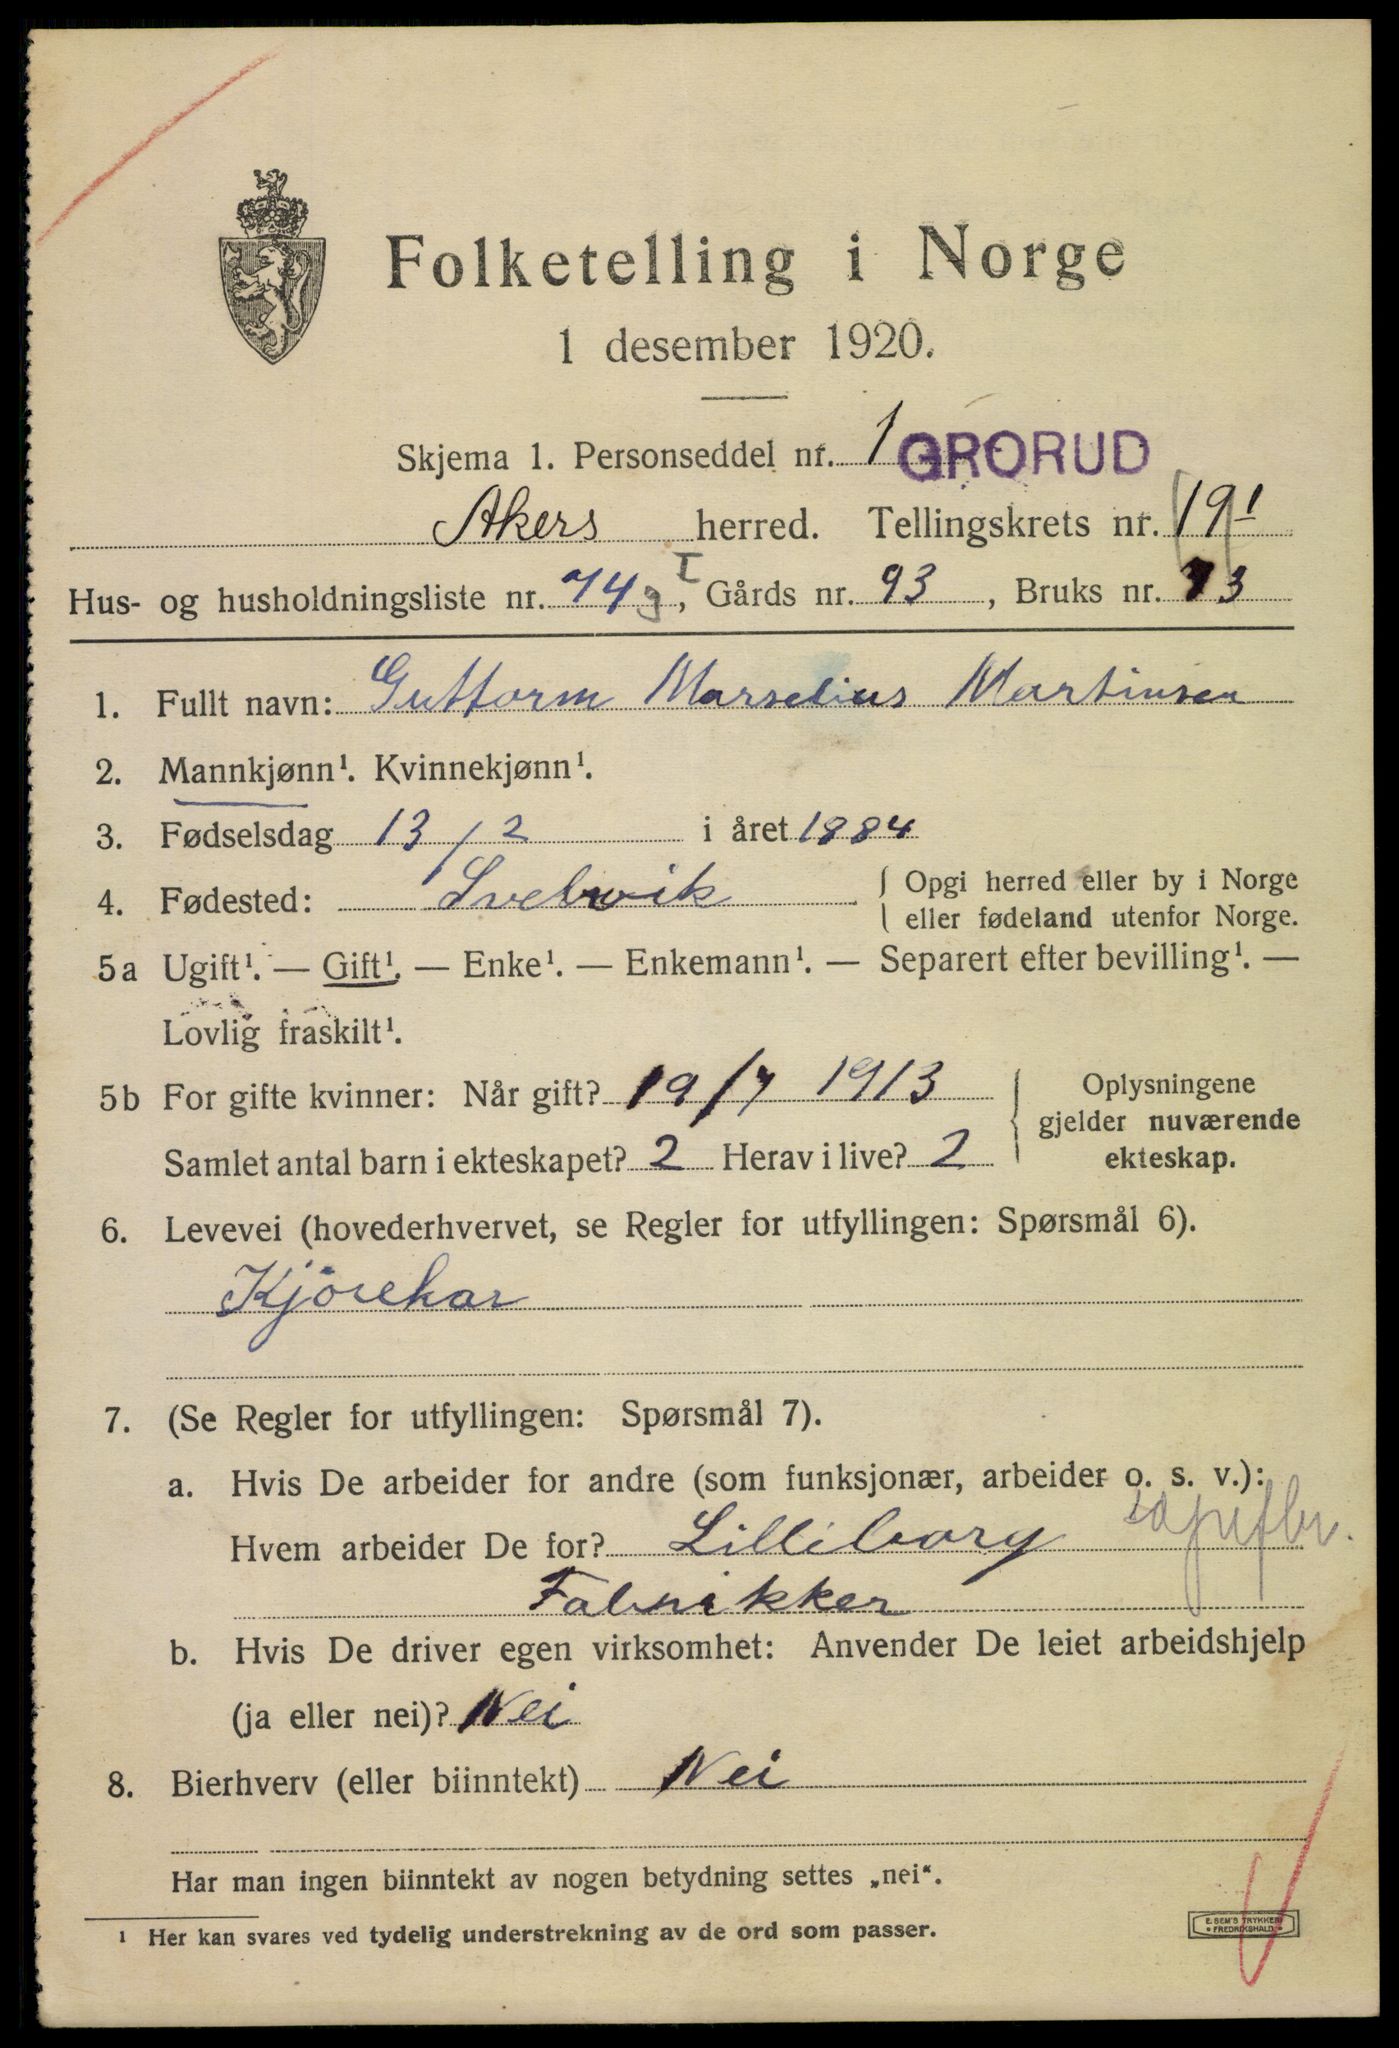 Folketelling i Norge
1 desember 1920.
Skjema 1. Personseddel nr. 1 GRORUD
Akers herred. Tellingskrets nr. 19 1
Hus- og husholdningsliste nr. 74 g I, Gårds nr. 93, Bruks nr. 73
1. Fullt navn: Guttorm Marselius Martinsen
2. Mannkjønn¹. Kvinnekjønn¹.
3. Fødselsdag 13/2 i året 1884
4. Fødested: Svelvik { Opgi herred eller by i Norge
eller fødeland utenfor Norge.
5a Ugift¹. — Gift¹. — Enke¹. — Enkemann¹. — Separert efter bevilling¹. —
Lovlig fraskilt¹.
5b For gifte kvinner: Når gift? 19/7 1913 { Oplysningene
gjelder nuværende
Samlet antal barn i ekteskapet? 2 Herav i live? 2 ekteskap.
6. Levevei (hovederhvervet, se Regler for utfyllingen: Spørsmål 6).
Kjörekar
7. (Se Regler for utfyllingen: Spørsmål 7).
a. Hvis De arbeider for andre (som funksjonær, arbeider o. s. v.):
Hvem arbeider De for? Lilleborg
Fabrikker
b. Hvis De driver egen virksomhet: Anvender De leiet arbeidshjelp
(ja eller nei)? Nei
8. Bierhverv (eller biinntekt) Nei
Har man ingen biinntekt av nogen betydning settes „nei“.
¹ Her kan svares ved tydelig understrekning av de ord som passer.
E. SEM'S TRYKKERI
• FREDRIKSHALD •